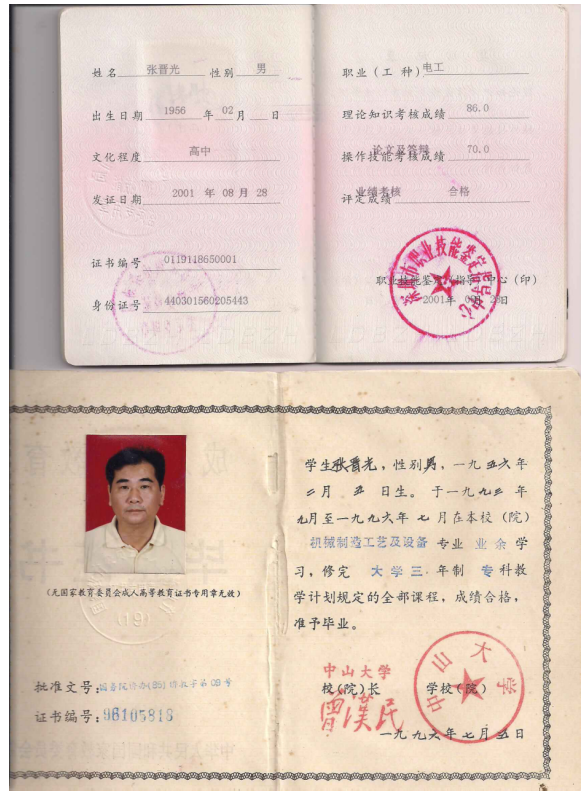 姓名 张晋光 性别 男
出生日期 1956 年 02 月 日
文化程度 高中
发证日期 2001 年 08 月 28
证书编号 0119118650001
身份证号 440301560205443
职业（工 种）电工
理论知识考核成绩 86.0
论文及答辩
操作技能考核成绩 70.0
业绩考核
评定成绩 合格
深圳市职业技能鉴定指导中心
职业技能鉴定指导中心（印）
2001年 08月 28日
(无国家教育委员会成人高等教育证书专用章无效)
(19)
批准文号:
证书编号: 96105818
学生张晋光，性别男，一九五六年
二月 五 日生。于一九九三 年
九月至一九九六年 七 月在本校（院）
机械制造工艺及设备 专业 业余 学
习，修完 大学三 年制 专 科教
学计划规定的全部课程，成绩合格，
准予毕业。
中山大学
校(院)长 学校(院)
曾漢民
中山大学
一九九六年七月五日